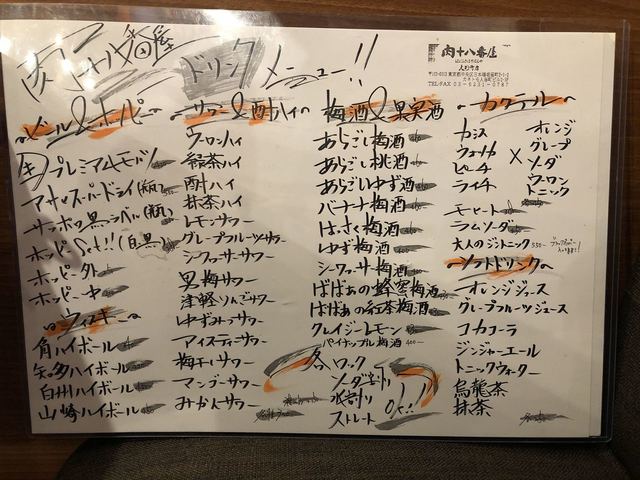 肉十八番屋 ドリンクメニュー!!
肉十八番屋
人形町店
ビール&ホッピー
生プレミアムモルツ
アサヒスーパードライ(瓶)
サッポロ黒ラベル(瓶)
ホッピーSet!!(白黒)
ホッピー外
ホッピー中
ウィスキー
角ハイボール
知多ハイボール
白州ハイボール
山崎ハイボール
サワー&酎ハイ
ウーロンハイ
緑茶ハイ
酎ハイ
抹茶ハイ
レモンサワー
グレープフルーツサワー
シークヮーサーサワー
黒梅サワー
津軽りんごサワー
ゆずみつサワー
アイスティーサワー
梅干しサワー
マンゴーサワー
みかんサワー
梅酒&果実酒
あらごし梅酒
あらごし桃酒
あらごしゆず酒
バーナナ梅酒
はっさく梅酒
ゆず梅酒
シークヮーサ梅酒
ばばぁの蜂蜜梅酒
ばばぁの紅茶梅酒
クレイジーレモン
パイナップル梅酒 400-
各
ロック
ソーダ割り
水割り
ストレート
OK!!
カクテル
カシス
ウォッカ
ピーチ
ライチ
×
オレンジ
グレープ
ソーダ
ウーロン
トニック
モヒート
ラムソーダ
大人のジントニック 530-
ソフトドリンク
オレンジジュース
グレープフルーツジュース
コカコーラ
ジンジャーエール
トニックウォーター
烏龍茶
抹茶